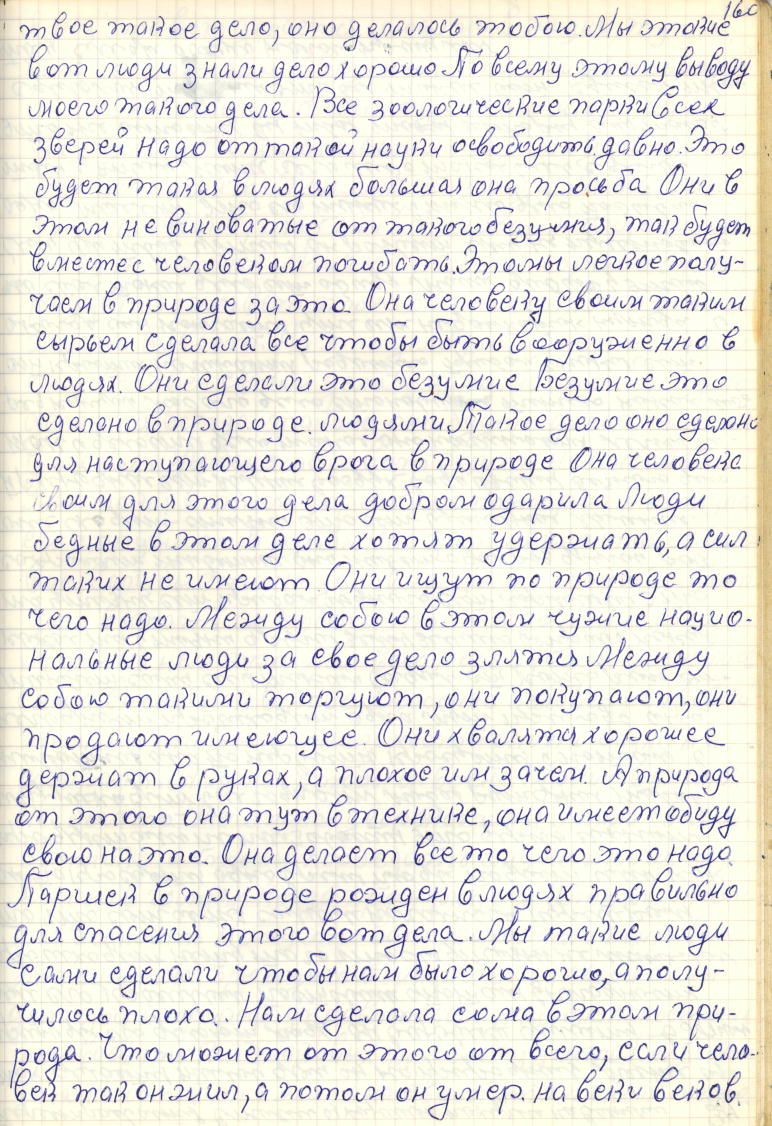 160
твое такое дело, оно делалось тобою. Мы этакие
вот люди знали дело хорошо По всему этому выводу
моего такого дела. Все зоологические парки всех
зверей надо от такой науки освободить давно. Это
будет такая в людях большая она просьба Они в
этом не виноватые от такого безумия, так будет
вместе с человеком погибать. Этомы легкое полу-
чаем в природе за это. Она человеку своим таким
сырьем сделала все чтобы быть вооруженно в
людях. Они сделали это безумие Безумие это
сделано в природе. людями. Такое дело оно сделоно
для наступающего врага в природе Она человека
своим для этого дела добром одарила Люди
бедные в этом деле хотят удержать, а сил
таких не имеют Они ищут по природе то
чего надо. Между собою в этом чужие нацио-
нальные люди за свое дело злятся Между
собою такими торгуют, они покупают, они
продают имеющее. Они хвалятся хорошее
держат в руках, а плохое им зачем. А природа
от этого она тут в технике, она имеет обиду
свою на это. Она делает все то чего это надо
Паршек в природе рожден в людях правильно
для спасения этого вот дела. Мы такие люди
сами сделали чтобы нам было хорошо, а полу-
чилось плохо. Нам сделала сама в этом при-
рода. Что может от этого от всего, если чело-
век так он жил, а потом он умер. на веки веков.